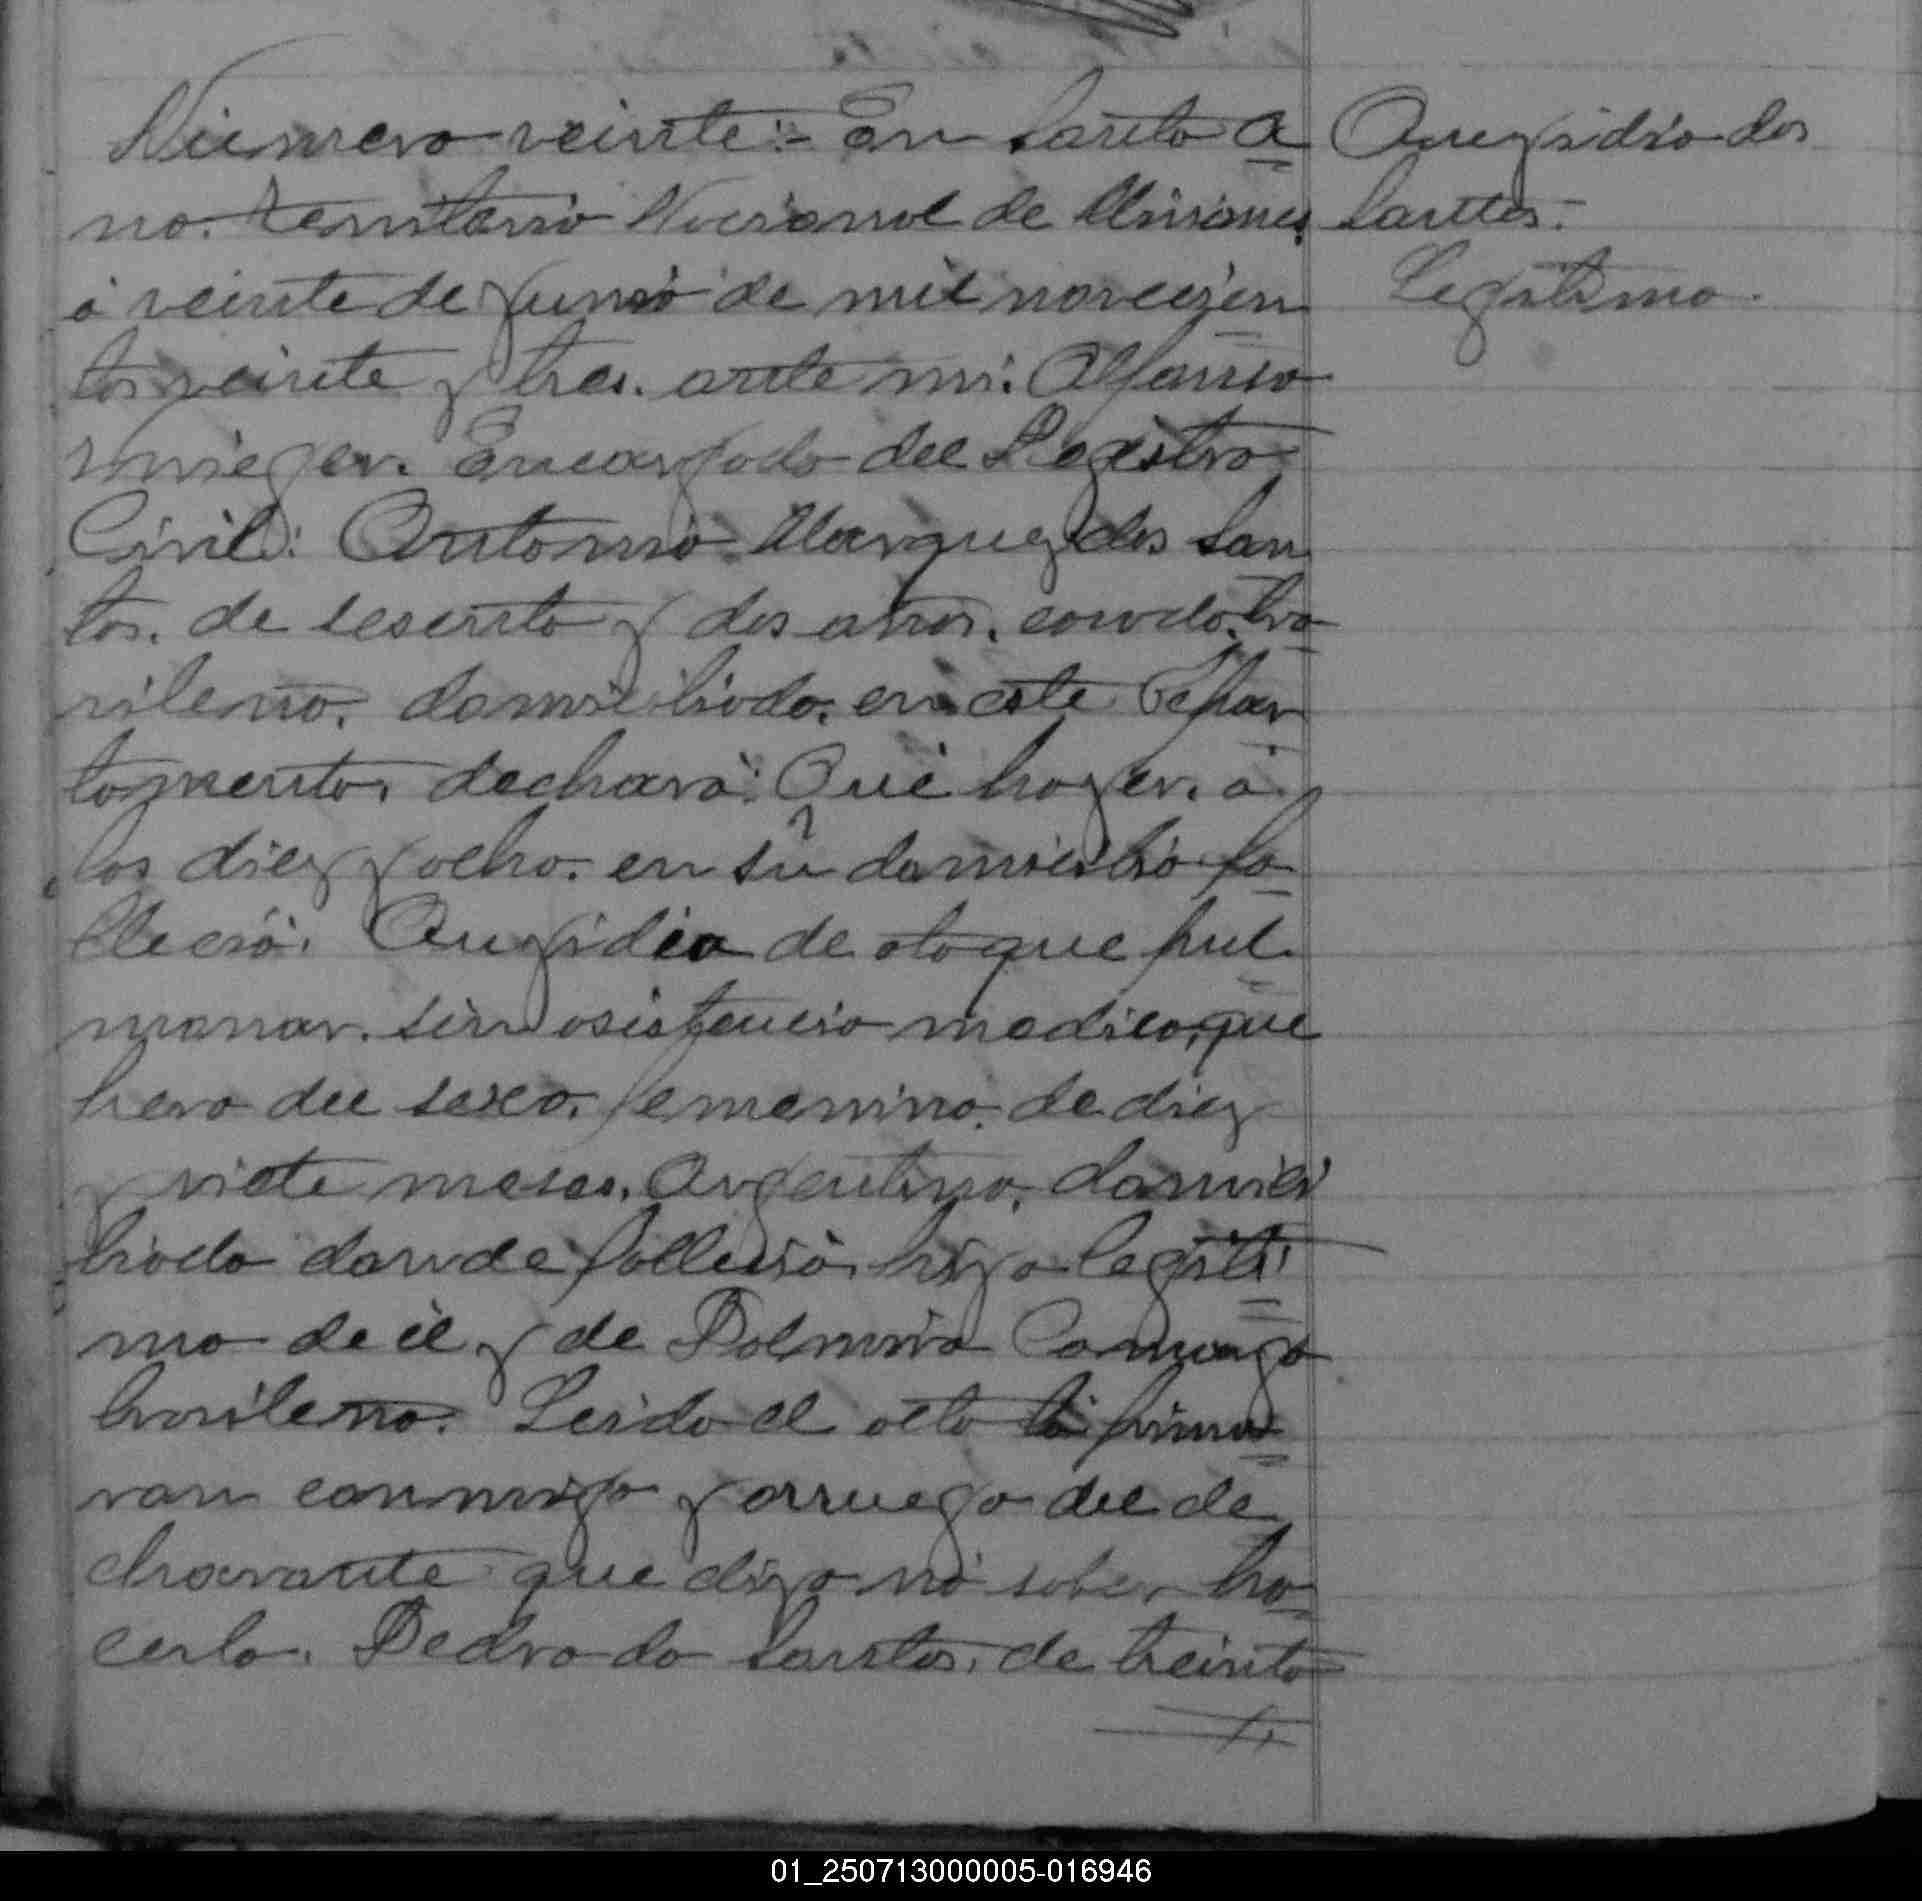 Número veinte:- En Santo A
no. Territorio Nacional de Misiones
á veinte de Junio de mil novecien
tos veinte y tres. ante mi: Alfonso
Encargado del Registro
Civil: Antonio Marquez dos San
tos. de sesenta y dos años. casado. bra
sileño. domiciliado. en este Depar
tamento. declaró: Que hayer. á
las diez y ocho. en su domicilio fa
lleció. de ataque pul
monar. sin asistencia medica, que
hera del sexo. femenino. de diez
y siete meses. Argentina. domici
liada donde falleció. hija legiti
ma de él y de Polmira Camargo
brasileña. Leida el acta la firma
ron conmigo y arruego del de
clarante que dijo nó saber ha
cerlo. Pedro do Santos. de treinta
dos
Santos.-
Legitima.
01_250713000005-016946